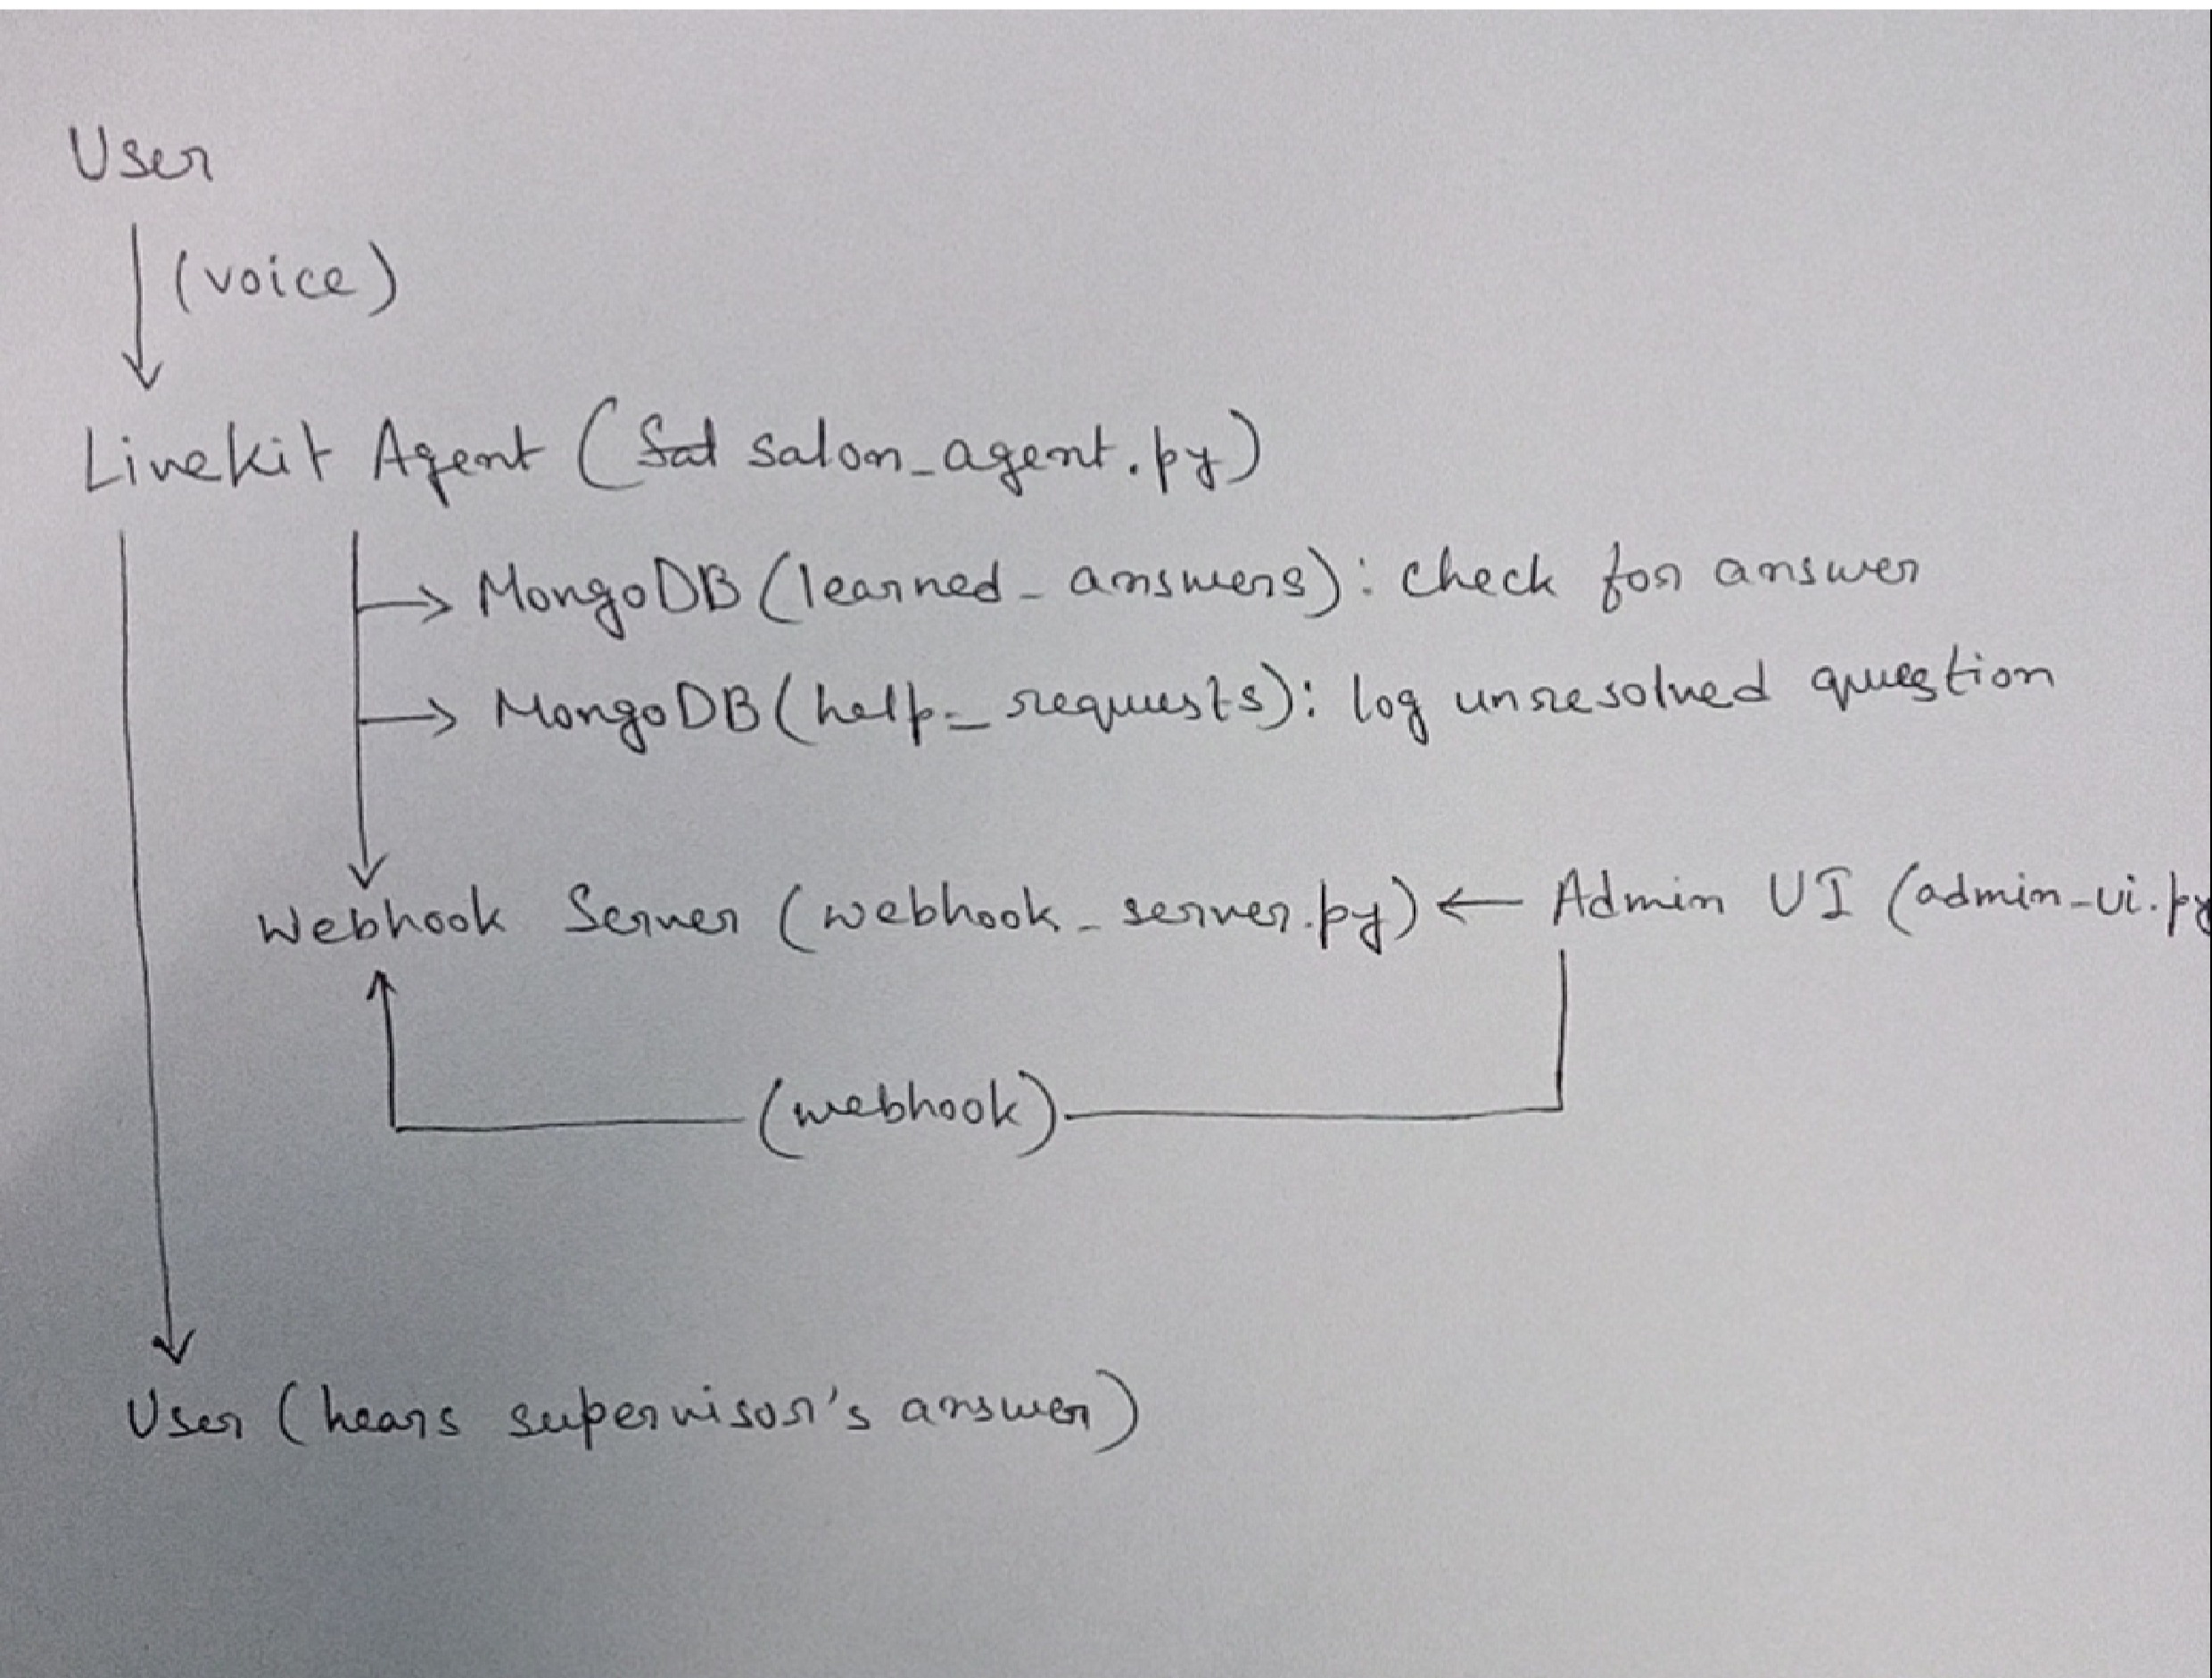 User
(voice)
Livekit Agent (salon_agent.py)
MongoDB (learned_answers): check for answer
MongoDB (help_requests): log unresolved question
Webhook Server (webhook_server.py) ← Admin UI (admin-ui.py
(webhook)
User (hears supervisor's answer)